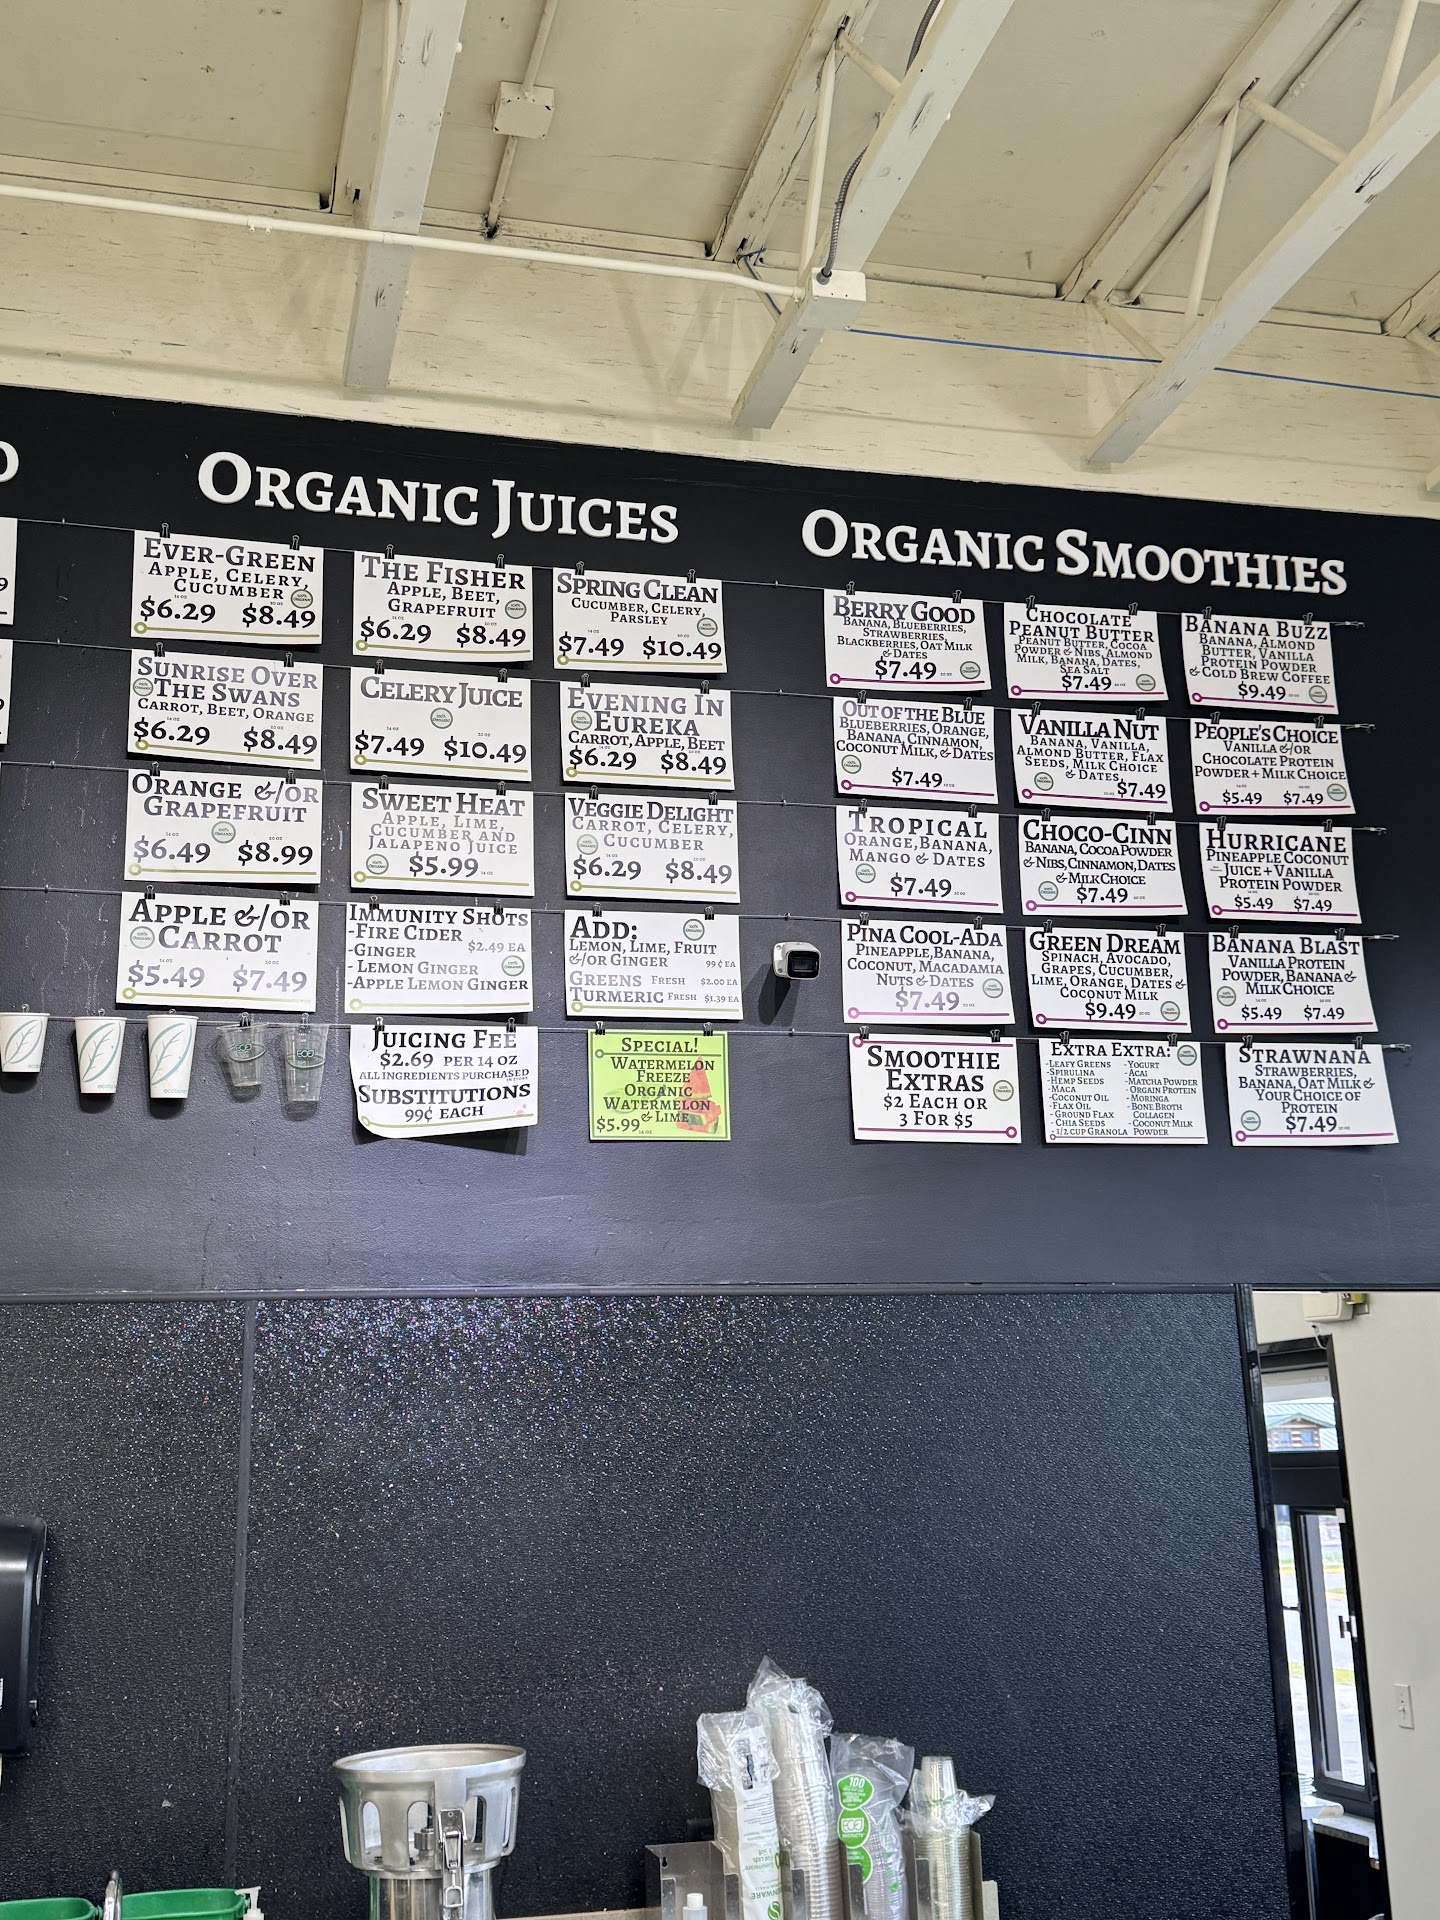 ORGANIC JUICES
EVER-GREEN
APPLE, CELERY,
CUCUMBER
14 OZ 20 OZ
$6.29 $8.49
THE FISHER
APPLE, BEET,
GRAPEFRUIT
14 OZ 20 OZ
$6.29 $8.49
SPRING CLEAN
CUCUMBER, CELERY,
PARSLEY
14 OZ 20 OZ
$7.49 $10.49
SUNRISE OVER
THE SWANS
CARROT, BEET, ORANGE
14 OZ 20 OZ
$6.29 $8.49
CELERY JUICE
14 OZ 20 OZ
$7.49 $10.49
EVENING IN
EUREKA
CARROT, APPLE, BEET
14 OZ 20 OZ
$6.29 $8.49
ORANGE &/OR
GRAPEFRUIT
14 OZ 20 OZ
$6.49 $8.99
SWEET HEAT
APPLE, LIME,
CUCUMBER AND
JALAPENO JUICE
$5.99 14 OZ
VEGGIE DELIGHT
CARROT, CELERY,
CUCUMBER
14 OZ 20 OZ
$6.29 $8.49
APPLE &/OR
CARROT
14 OZ 20 OZ
$5.49 $7.49
IMMUNITY SHOTS
-FIRE CIDER
-GINGER $2.49 EA
- LEMON GINGER
-APPLE LEMON GINGER
ADD:
LEMON, LIME, FRUIT
&/OR GINGER 99 ¢ EA
GREENS FRESH $2.00 EA
TURMERIC FRESH $1.39 EA
JUICING FEE
$2.69 PER 14 OZ
ALL INGREDIENTS PURCHASED
IN STORE
SUBSTITUTIONS
99¢ EACH
SPECIAL!
WATERMELON
FREEZE
ORGANIC
WATERMELON
& LIME
$5.99 14 OZ
ORGANIC SMOOTHIES
BERRY GOOD
BANANA, BLUEBERRIES,
STRAWBERRIES,
BLACKBERRIES, OAT MILK
& DATES
$7.49 20 OZ
CHOCOLATE
PEANUT BUTTER
PEANUT BUTTER, COCOA
POWDER & NIBS, ALMOND
MILK, BANANA, DATES,
SEA SALT
$7.49 20 OZ
BANANA BUZZ
BANANA, ALMOND
BUTTER, VANILLA
PROTEIN POWDER
& COLD BREW COFFEE
$9.49 20 OZ
OUT OF THE BLUE
BLUEBERRIES, ORANGE,
BANANA, CINNAMON,
COCONUT MILK, & DATES
$7.49 20 OZ
VANILLA NUT
BANANA, VANILLA,
ALMOND BUTTER, FLAX
SEEDS, MILK CHOICE
& DATES
20 OZ $7.49
PEOPLE'S CHOICE
VANILLA &/OR
CHOCOLATE PROTEIN
POWDER + MILK CHOICE
14 OZ 20 OZ
$5.49 $7.49
TROPICAL
ORANGE, BANANA,
MANGO & DATES
$7.49 20 OZ
CHOCO-CINN
BANANA, COCOA POWDER
& NIBS, CINNAMON, DATES
& MILK CHOICE
$7.49 20 OZ
HURRICANE
PINEAPPLE COCONUT
JUICE + VANILLA
PROTEIN POWDER
$5.49 $7.49
PINA COOL-ADA
PINEAPPLE, BANANA,
COCONUT, MACADAMIA
NUTS & DATES
$7.49 20 OZ
GREEN DREAM
SPINACH, AVOCADO,
GRAPES, CUCUMBER,
LIME, ORANGE, DATES &
COCONUT MILK
$9.49 20 OZ
BANANA BLAST
VANILLA PROTEIN
POWDER, BANANA &
MILK CHOICE
14 OZ 20 OZ
$5.49 $7.49
SMOOTHIE
EXTRAS
$2 EACH OR
3 FOR $5
EXTRA EXTRA:
-LEAFY GREENS
-SPIRULINA
-HEMP SEEDS
-MACA
-COCONUT OIL
-FLAX OIL
- GROUND FLAX
- CHIA SEEDS
- 1/2 CUP GRANOLA
-YOGURT
- ACAI
-MATCHA POWDER
- ORGAIN PROTEIN
- MORINGA
- BONE BROTH
COLLAGEN
-COCONUT MILK
POWDER
STRAWNANA
STRAWBERRIES,
BANANA, OAT MILK &
YOUR CHOICE OF
PROTEIN
$7.49 20 OZ
100
ECO